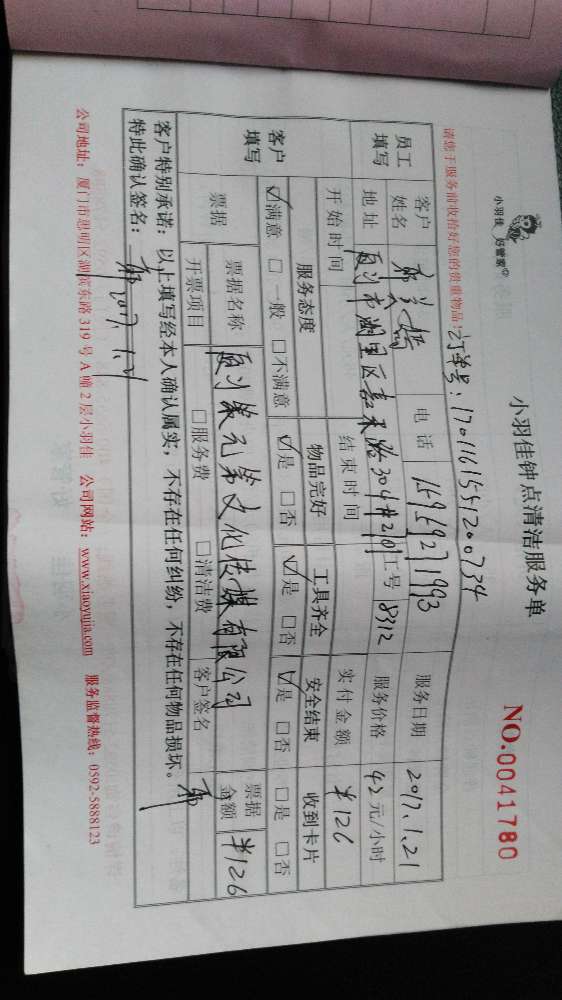 小羽佳钟点清洁服务单
NO.0041780
小羽佳 好管家
请您于服务前收拾好您的贵重物品!
订单号:1701161551200734
员工填写
客户姓名 电话 15959271993 服务日期 2017.1.21
地址 厦门市湖里区嘉禾路304#2101 工号 8312 服务价格 42元/小时
开始时间 结束时间 实付金额 ¥126
客户填写
服务态度 物品完好 工具齐全 安全结束 收到卡片
☑满意 □一般 □不满意 ☑是 □否 ☑是 □否 ☑是 □否 □是 □否
票据 票据名称 厦门荣元第文化传媒有限公司 票据金额 ¥126
开票项目 □服务费 □清洁费 客户签名
客户特别承诺:以上填写经本人确认属实,不存在任何纠纷,不存在任何物品损坏。
特此确认签名: 2017.1.21
公司地址:厦门市思明区湖滨东路319号A幢2层小羽佳 公司网站:www.xiaoyujia.com 服务监督热线:0592-5888123